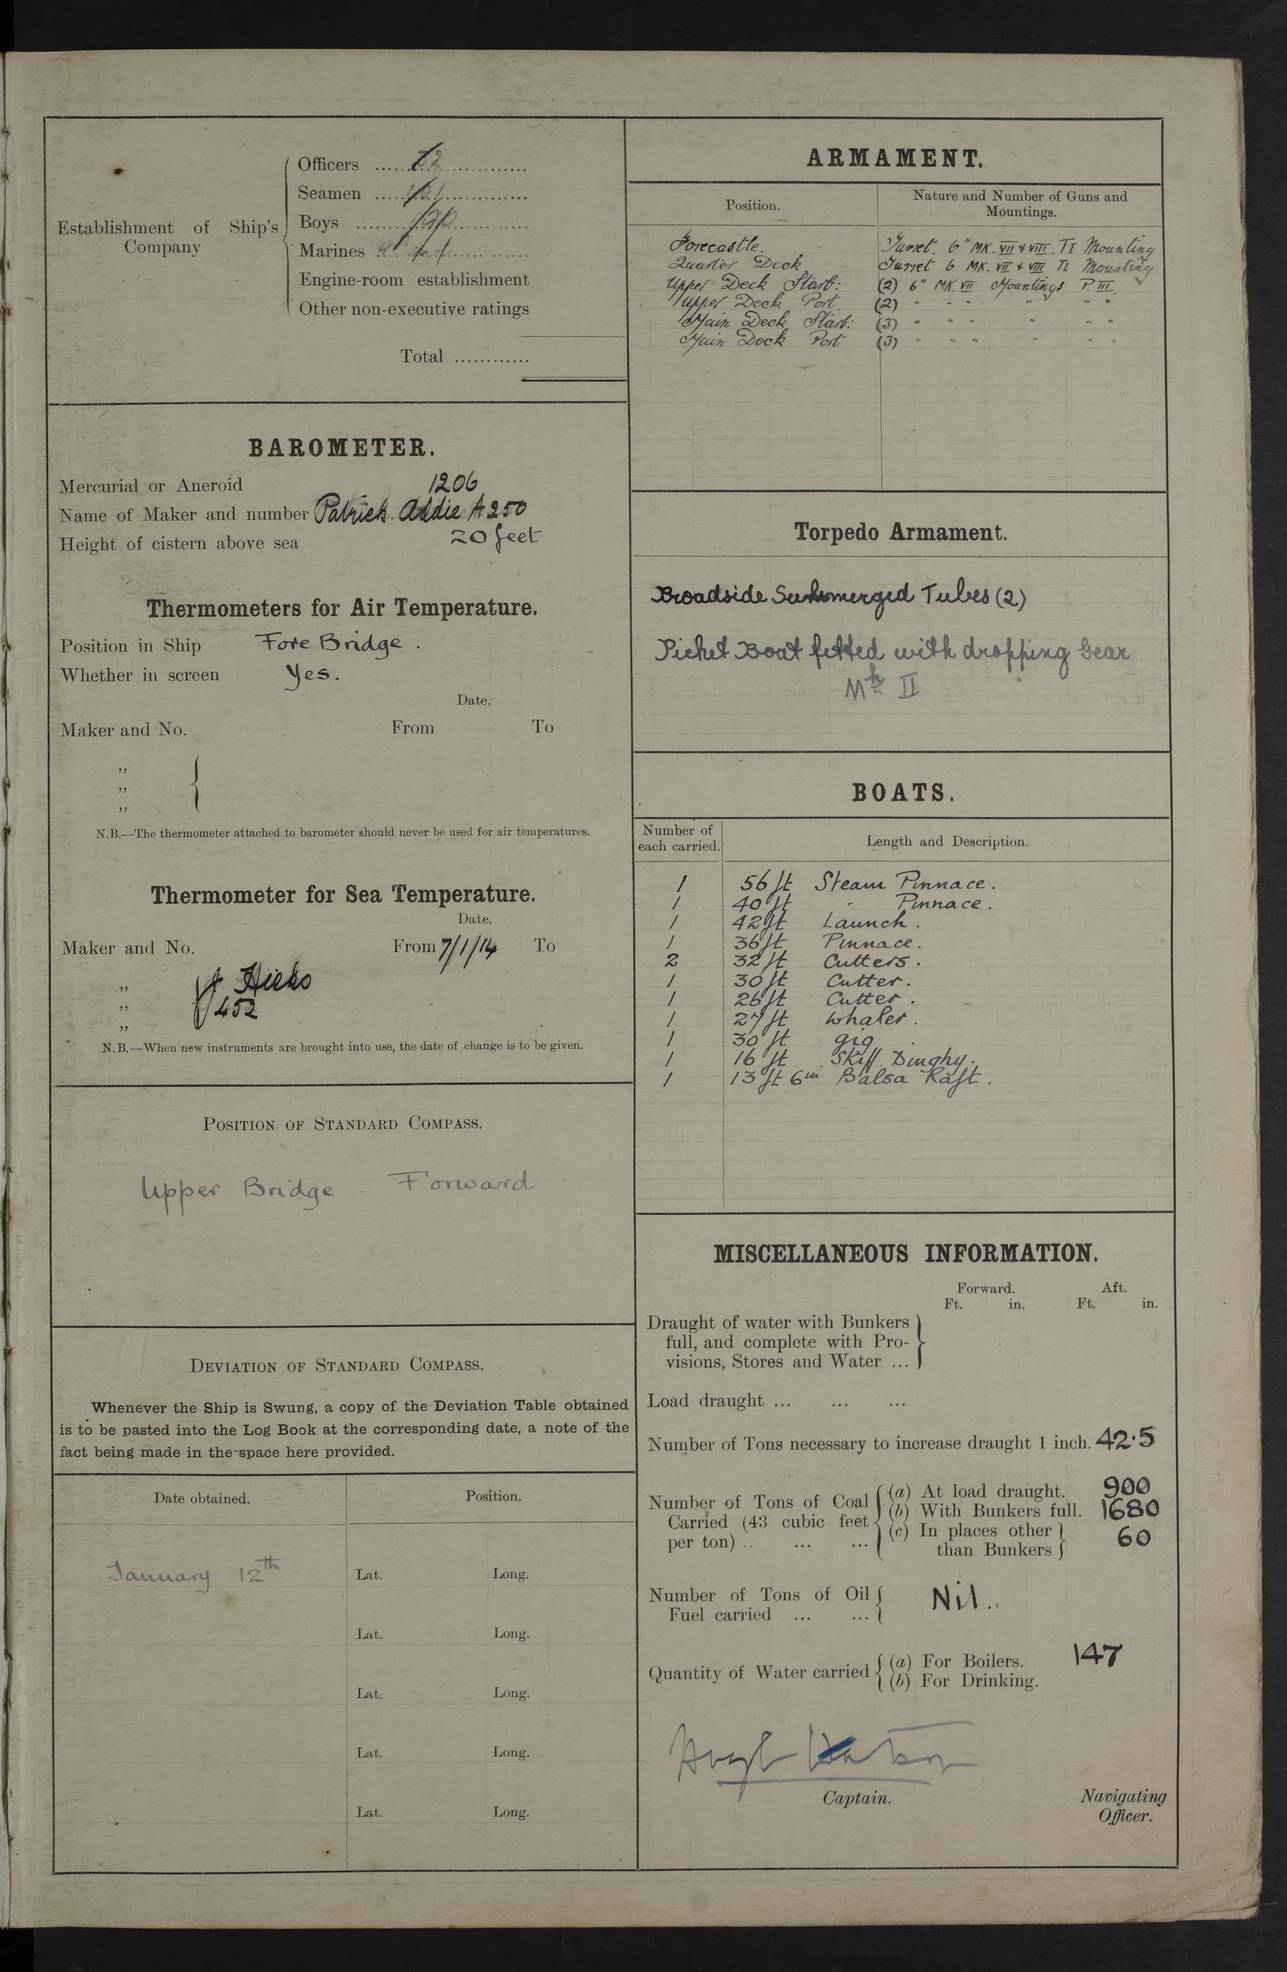 Establishment of Ship's
Company
Officers
Seamen
Boys
Marines
Engine-room establishment
Other non-executive ratings
Total
BAROMETER.
Mercurial or Aneroid 1206
Name of Maker and number Patrick Addie A 250
Height of cistern above sea 20 feet
Thermometers for Air Temperature.
Position in Ship Fore Bridge.
Whether in screen Yes.
Date.
Maker and No. From To
„
„
„
N.B.—The thermometer attached to barometer should never be used for air temperatures.
Thermometer for Sea Temperature.
Date.
Maker and No. From 7/1/14 To
„ J Hicks
„ 452
„
N.B.—When new instruments are brought into use, the date of change is to be given.
POSITION OF STANDARD COMPASS.
Upper Bridge Forward
DEVIATION OF STANDARD COMPASS.
Whenever the Ship is Swung, a copy of the Deviation Table obtained
is to be pasted into the Log Book at the corresponding date, a note of the
fact being made in the space here provided.
Date obtained. Position.
January 12th Lat. Long.
Lat. Long.
Lat. Long.
Lat. Long.
Lat. Long.
ARMAMENT.
Position. Nature and Number of Guns and
Mountings.
Forecastle. Turret. 6" MK. VII & VIII. TI Mounting
Quarter Deck Turret 6 MK. VII & VIII TI Mounting
Upper Deck Starb: (2) 6" MK. VII Mountings P. III.
Upper Deck Port. (2) " " " " " "
Main Deck Starb: (3) " " " " " "
Main Deck Port (3) " " " " " "
Torpedo Armament.
Broadside Submerged Tubes (2)
Picket Boat fitted with dropping Gear
Mk II
BOATS.
Number of
each carried. Length and Description.
1 56 ft Steam Pinnace.
1 40 ft " Pinnace.
1 42 ft Launch.
1 36 ft Pinnace.
2 32 ft Cutters.
1 30 ft Cutter.
1 26 ft Cutter.
1 27 ft Whaler.
1 30 ft gig.
1 16 ft Skiff Dinghy.
1 13 ft 6in Balsa Raft.
MISCELLANEOUS INFORMATION.
Forward. Aft.
Ft. in. Ft. in.
Draught of water with Bunkers
full, and complete with Pro-
visions, Stores and Water ...
Load draught ... ... ...
Number of Tons necessary to increase draught 1 inch. 42·5
Number of Tons of Coal
Carried (43 cubic feet
per ton) .. ... ...
(a) At load draught. 900
(b) With Bunkers full. 1680
(c) In places other
than Bunkers 60
Number of Tons of Oil
Fuel carried ... ... Nil.
Quantity of Water carried
(a) For Boilers. 147
(b) For Drinking.
Hugh Watson
Captain.
Navigating
Officer.